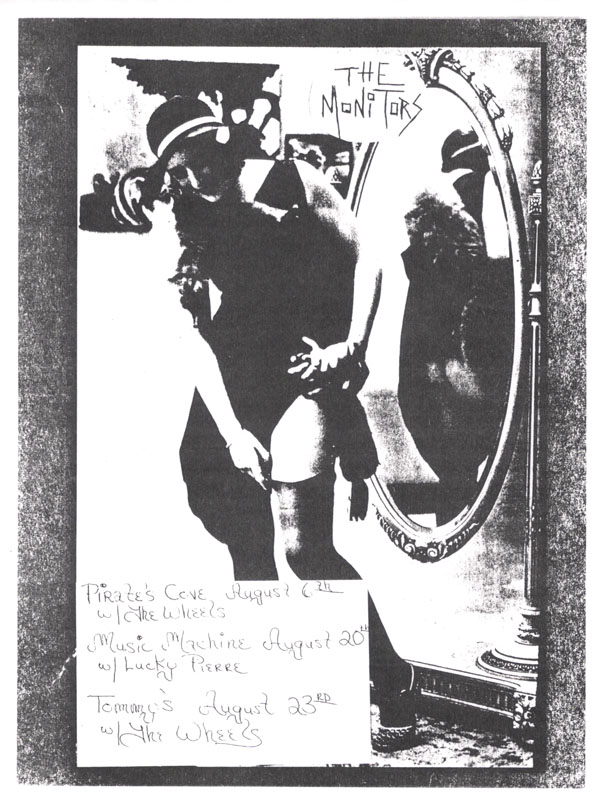 THE
MONiTORS
PiRate's Cove August 6th
w/ The Wheels
Music Machine August 20th
w/ Lucky Pierre
Tommy's August 23RD
w/ The Wheels